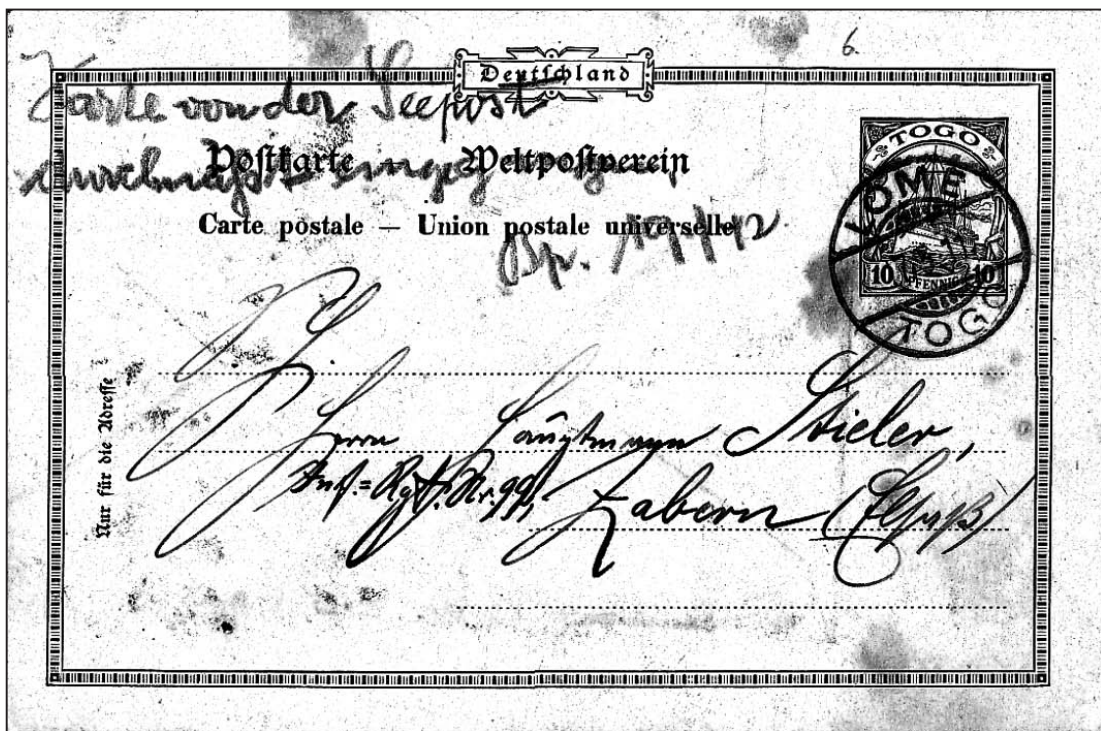 6.
Deutschland
Karte von der Seepost
durchnäßt eingeg
Postkarte — Weltpostverein
Carte postale — Union postale universelle
Bp.
TOGO
10 PFENNIG 10
LOME
TOGO
Nur für die Adresse
Herrn Hauptmann Stieler,
Inf.=Rgt. Nr. 99,
Zabern (Elsaß)